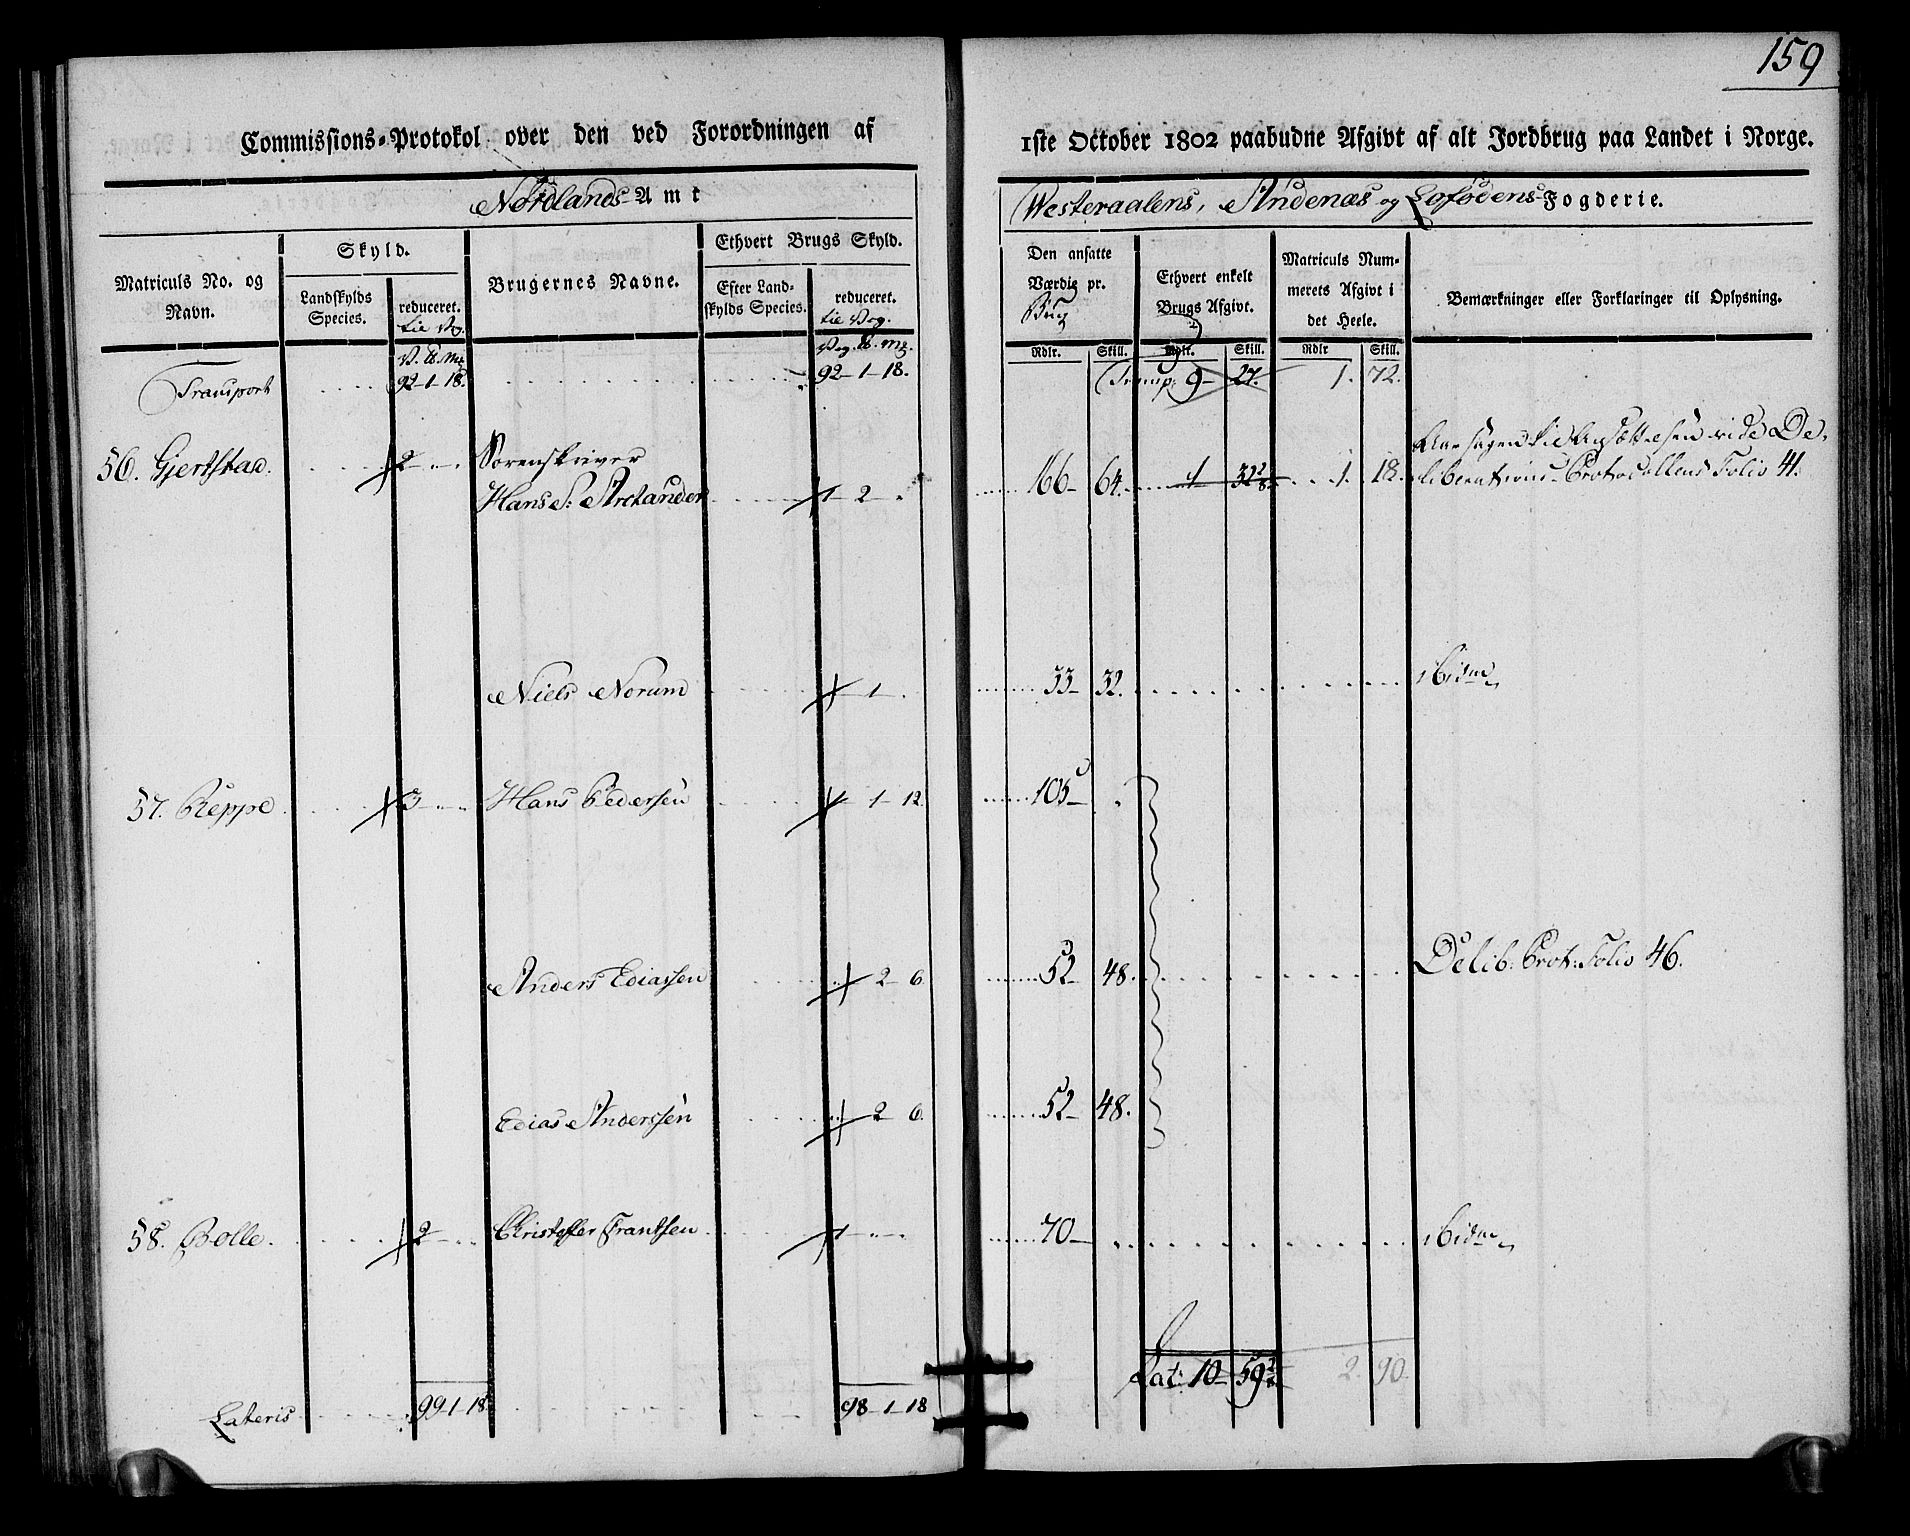 159
Commissions-Protokol over den ved Forordningen af 1ste October 1802 paabudne Afgivt af alt Jordbrug paa Landet i Norge.
Nordlands Amt
Westeraalens, Andenæs og Lofodens Fogderie.
Matriculs No. og Navn.
Skyld.
Landskylds Species.
reduceret. til Vg.
Brugernes Navne.
Ethvert Brugs Skyld.
Efter Landskylds Species.
reduceret. til Vog.
Den ansatte Værdie pr. Brug
Ethvert enkelt Brugs Afgivt.
Matriculs Nummerets Afgivt i det Heele.
Bemærkninger eller Forklaringer til Oplysning.
V. ℔. Mk. Vog. ℔. Mk. Rdlr. Skill. Rdlr. Skill. Rdlr Skill.
Transport 92-1-18. 92-1-18. Transp: 9- 27. 1. 72.
56. Gjertstad. 2 Sorenskriver
Hans S: Archander 1-2-. 166- 64. 1 32 2/8 1. 18. Aarsagen til Ansættelsen vide Deliberations-Protocollens Folio 41.
Niels Norum 1. 33- 32. ibidm
57. Reppe 3 Hans Pedersen 1-12. 105-
Anders Ediassen 2 6. 52- 48. Delib: Prot: Folio 46.
Edias Anderssen 2 6. 52- 48.
58. Bolle. 2 Christoffer Frantsen 1 70- ibidm
Lat: 10- 59 2/8 2. 90.
Lateris 99-1-18. 98-1-18